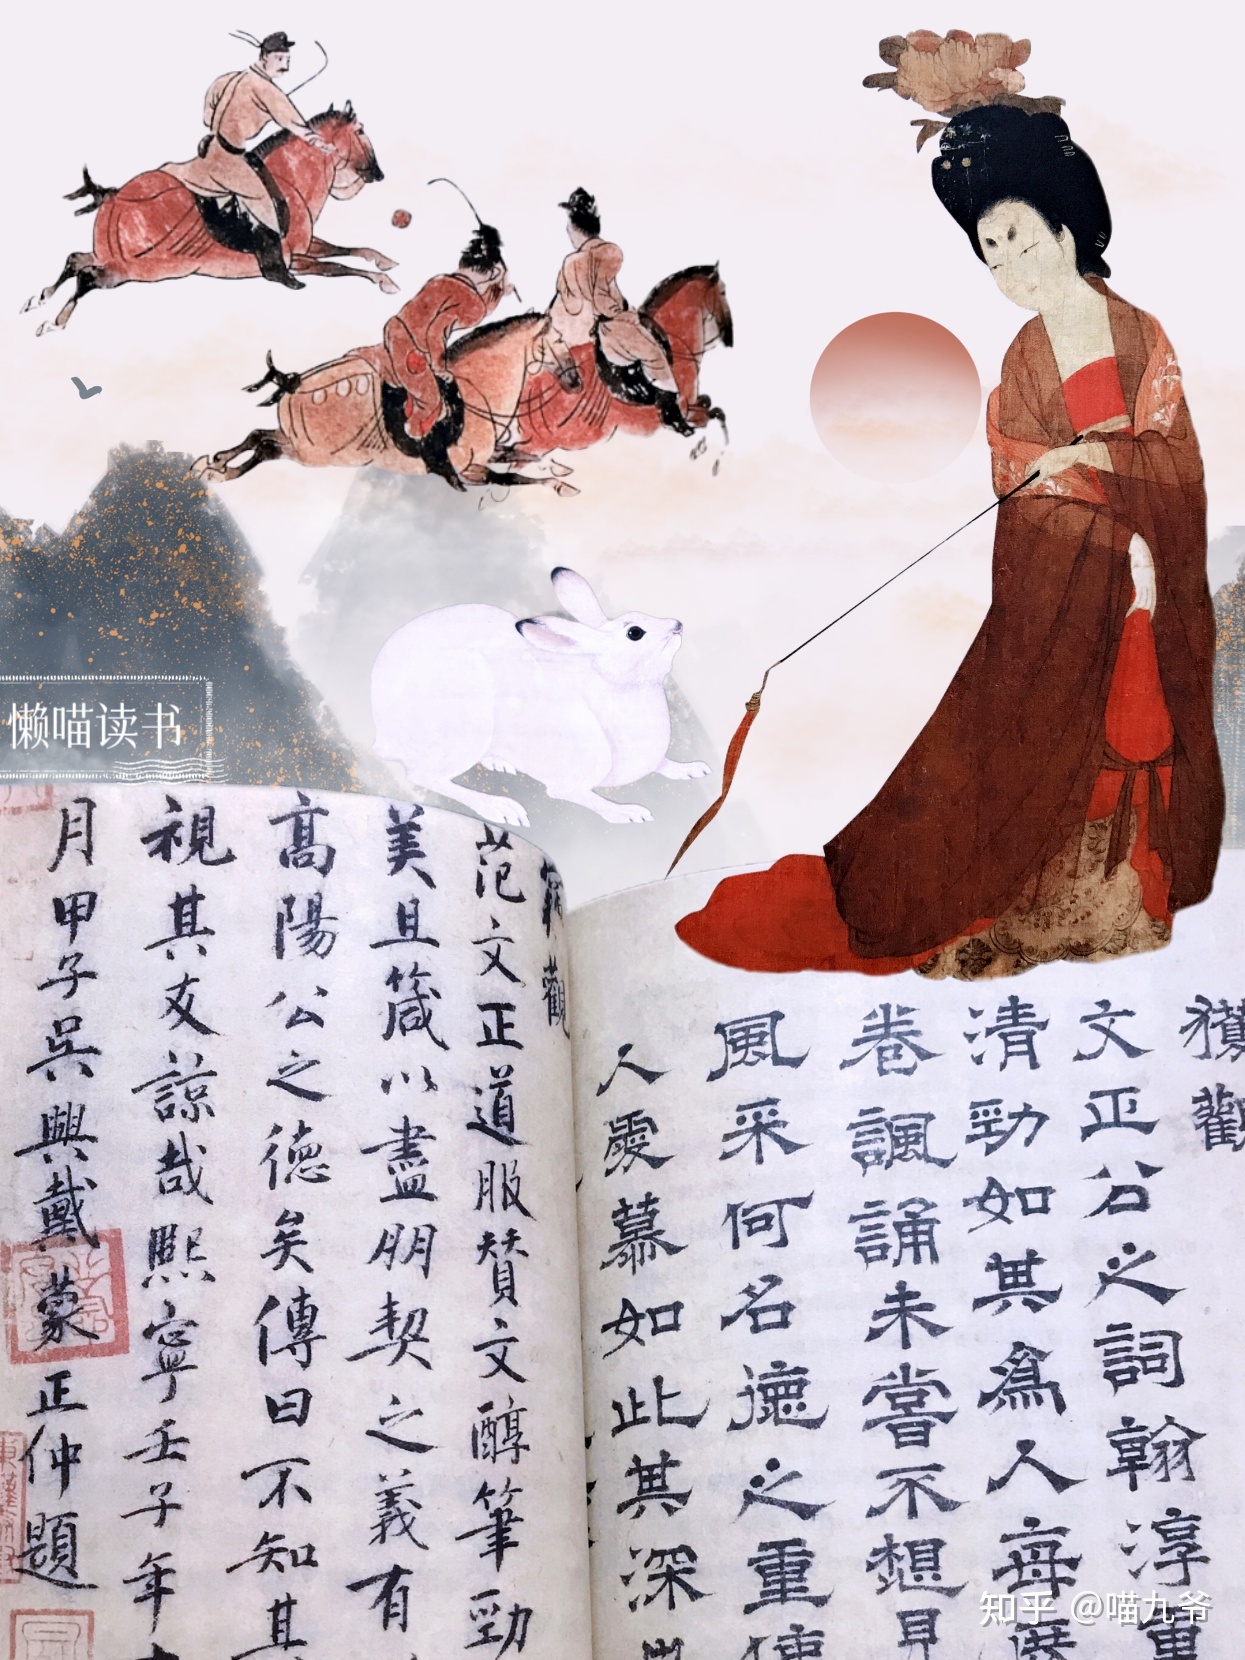 懒喵读书
獲觀
文正公之詞翰淳重
清勁如其為人每
卷諷誦未嘗不想見
風采何名德之重使
人愛慕如此其深
觀
范文正道服賛文醇筆勁
美且箴以盡朋契之義有
高陽公之德矣傳曰不知其
視其友諒哉熙寧壬子年
月甲子吳興戴蒙正仲題
知乎 @喵九爷